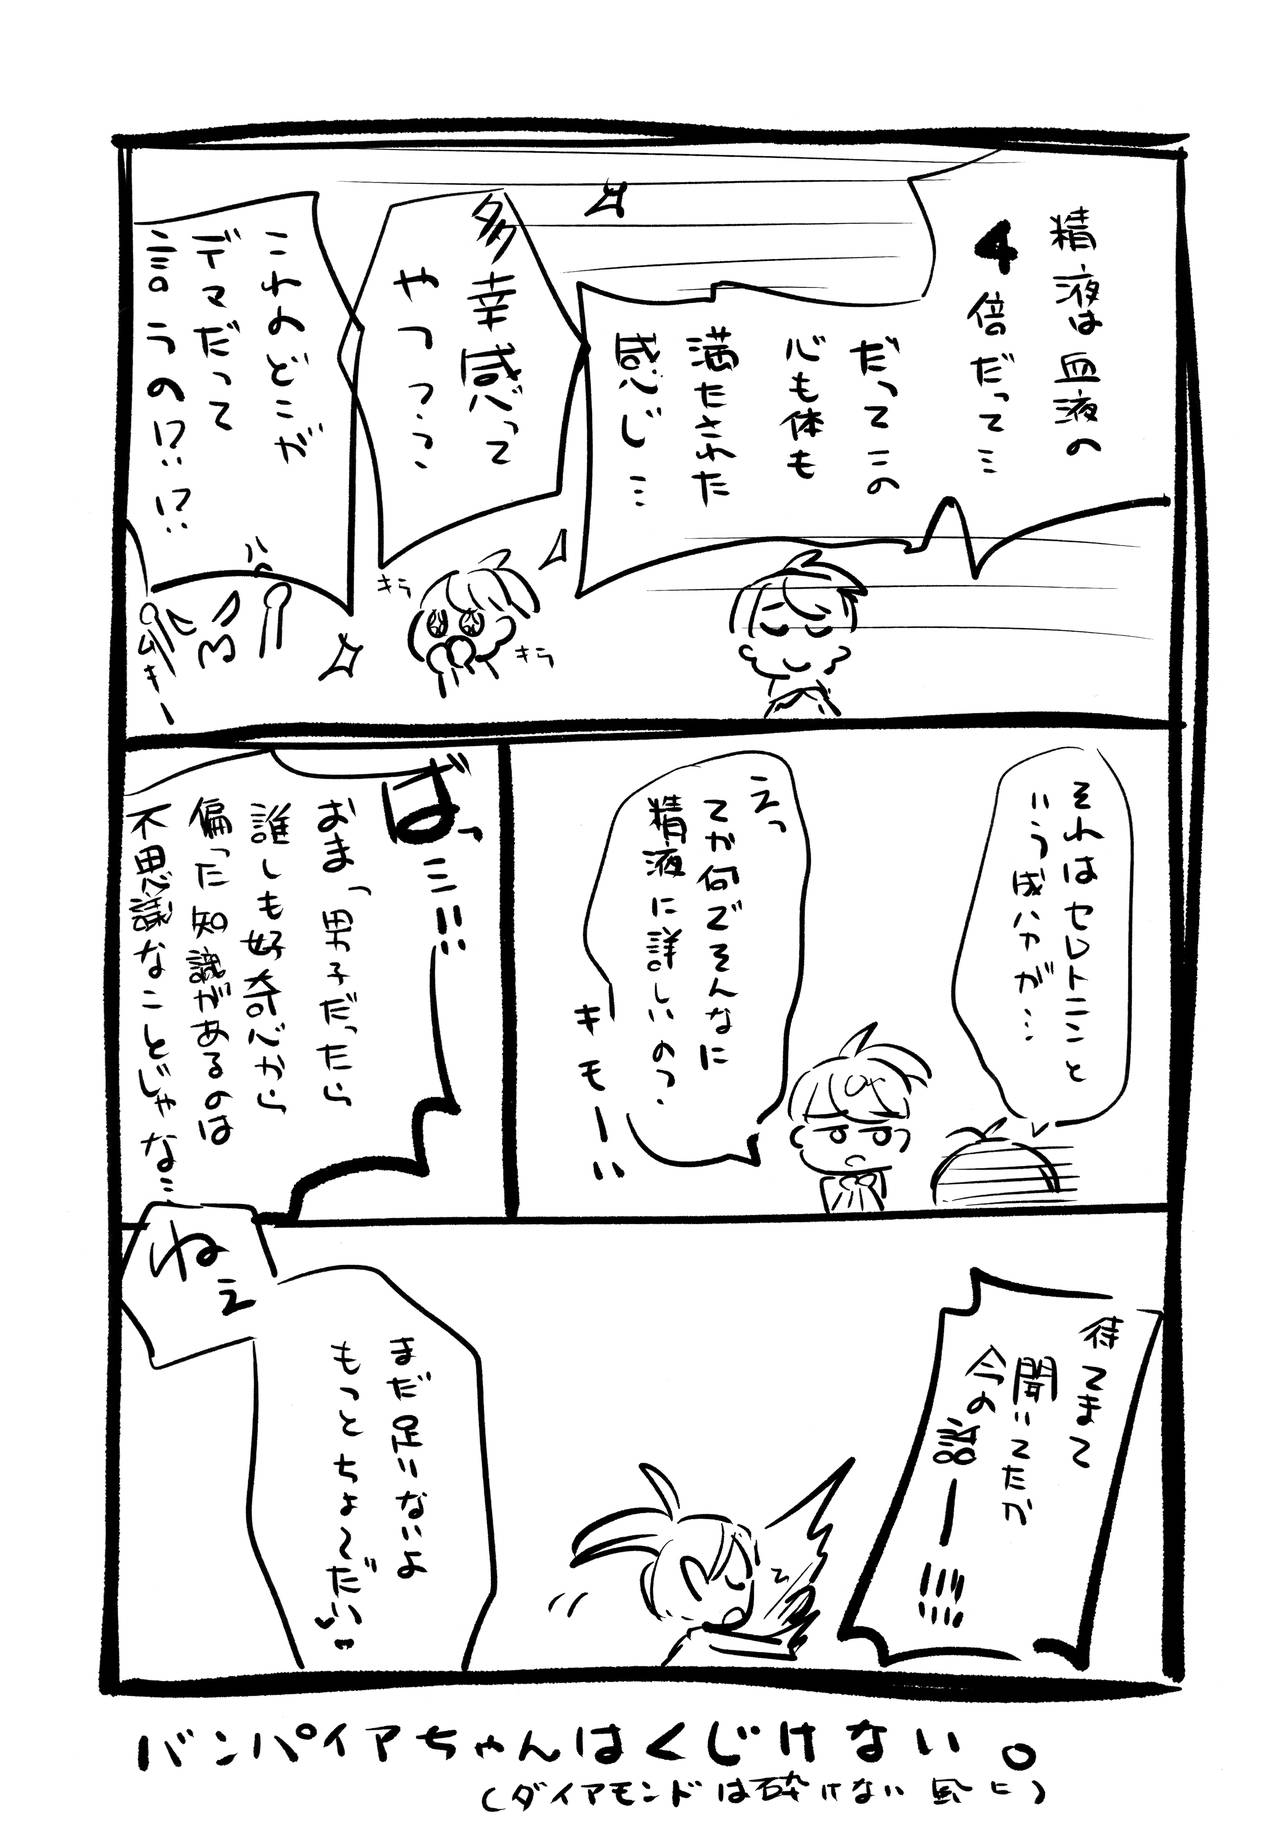 精液は血液の
4倍だって…
だってこの
心も体も
満たされた
感じ…
多幸感って
やつ？？
これのどこが
デマだって
言うの!?!?
キラ
キラ
ハ
ムキー
それはセレトニンと
いう成分が…
えっ
てか何でそんなに
精液に詳しいの？
キモーい
ばっ…!!
おまっ男子だったら
誰しも好奇心から
偏った知識があるのは
不思議なことじゃな…
待てまて
聞いてたか
今の話ー!!!!
ねぇ
まだ足りないよ
もっとちょ〜だい♥
バンパイアちゃんはくじけない。
(ダイアモンドは砕けない風に)